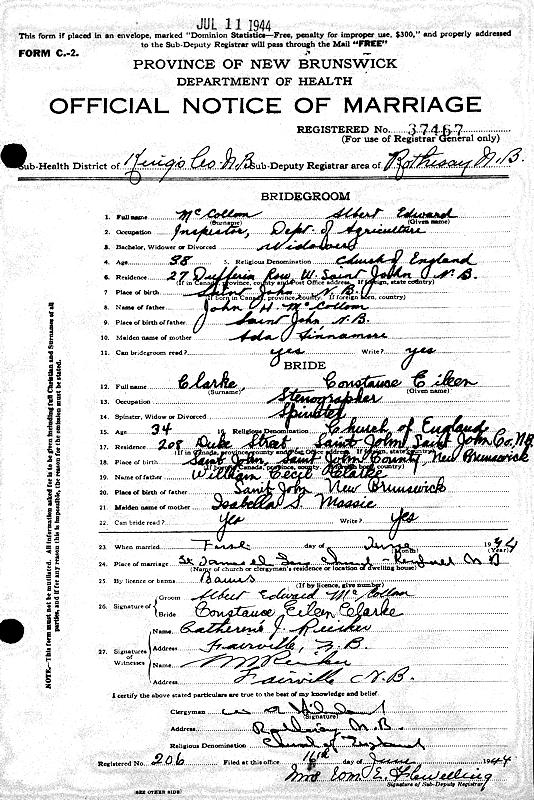 JUL 11 1944
This form if placed in an envelope, marked "Dominion Statistics—Free, penalty for improper use, $300," and properly addressed
to the Sub-Deputy Registrar will pass through the Mail "FREE"
FORM C.-2.
PROVINCE OF NEW BRUNSWICK
DEPARTMENT OF HEALTH
OFFICIAL NOTICE OF MARRIAGE
REGISTERED No. 37467
(For use of Registrar General only)
Sub-Health District of King's Co N.B. Sub-Deputy Registrar area of Rothesay N.B.
BRIDEGROOM
1. Full name McCollom Albert Edward
(Surname) (Given name)
2. Occupation Inspector, Dept. of Agriculture
3. Bachelor, Widower or Divorced Widower
4. Age 38 5. Religious Denomination Church of England
6. Residence 27 Dufferin Row W. Saint John N.B.
(If in Canada, province, county and Post Office address. If foreign, state country)
7. Place of birth Saint John, N.B.
(If born in Canada, province, county. If foreign born, country)
8. Name of father John H. McCollom
9. Place of birth of father Saint John, N.B.
10. Maiden name of mother Ada
11. Can bridegroom read? yes Write? yes
BRIDE
12. Full name Clarke, Constance Eileen
(Surname) (Given name)
13. Occupation Stenographer
14. Spinster, Widow or Divorced Spinster
15. Age 34 16. Religious Denomination Church of England
17. Residence 208 Duke Street, Saint John, Saint John Co, N.B.
(If in Canada, province, county and Post Office address. If foreign, state country)
18. Place of birth Saint John, Saint John County, New Brunswick
(If born in Canada, province, county. If foreign born, country)
19. Name of father William Cecil Clarke
20. Place of birth of father Saint John New Brunswick
21. Maiden name of mother Isabella S. Massie
22. Can bride read? Yes Write? Yes
23. When married First day of June 1944
(Month) (Year)
24. Place of marriage St N B
(Name of church or clergymen's residence or location of dwelling house)
25. By licence or banns Banns
(If by licence, give number)
26. Signature of Groom Albert Edward McCollom
Bride Constance Eileen Clarke
27. Signatures of Witnesses
Name Catherine J.
Address Fairville, N.B.
Name
Address Fairville N.B.
I certify the above stated particulars are true to the best of my knowledge and belief.
Clergyman
(Signature)
Address Rothesay N.B.
Religious Denomination Church of England
Registered No. 206 Filed at this office day of June 1944
Mrs E. Flewelling
Signature of Sub-Deputy Registrar
(SEE OTHER SIDE)
NOTE.—This form must not be mutilated. All information asked for is to be given including full Christian and Surnames of all
parties, and if for any reason this is impossible, the reason for the omission must be stated.